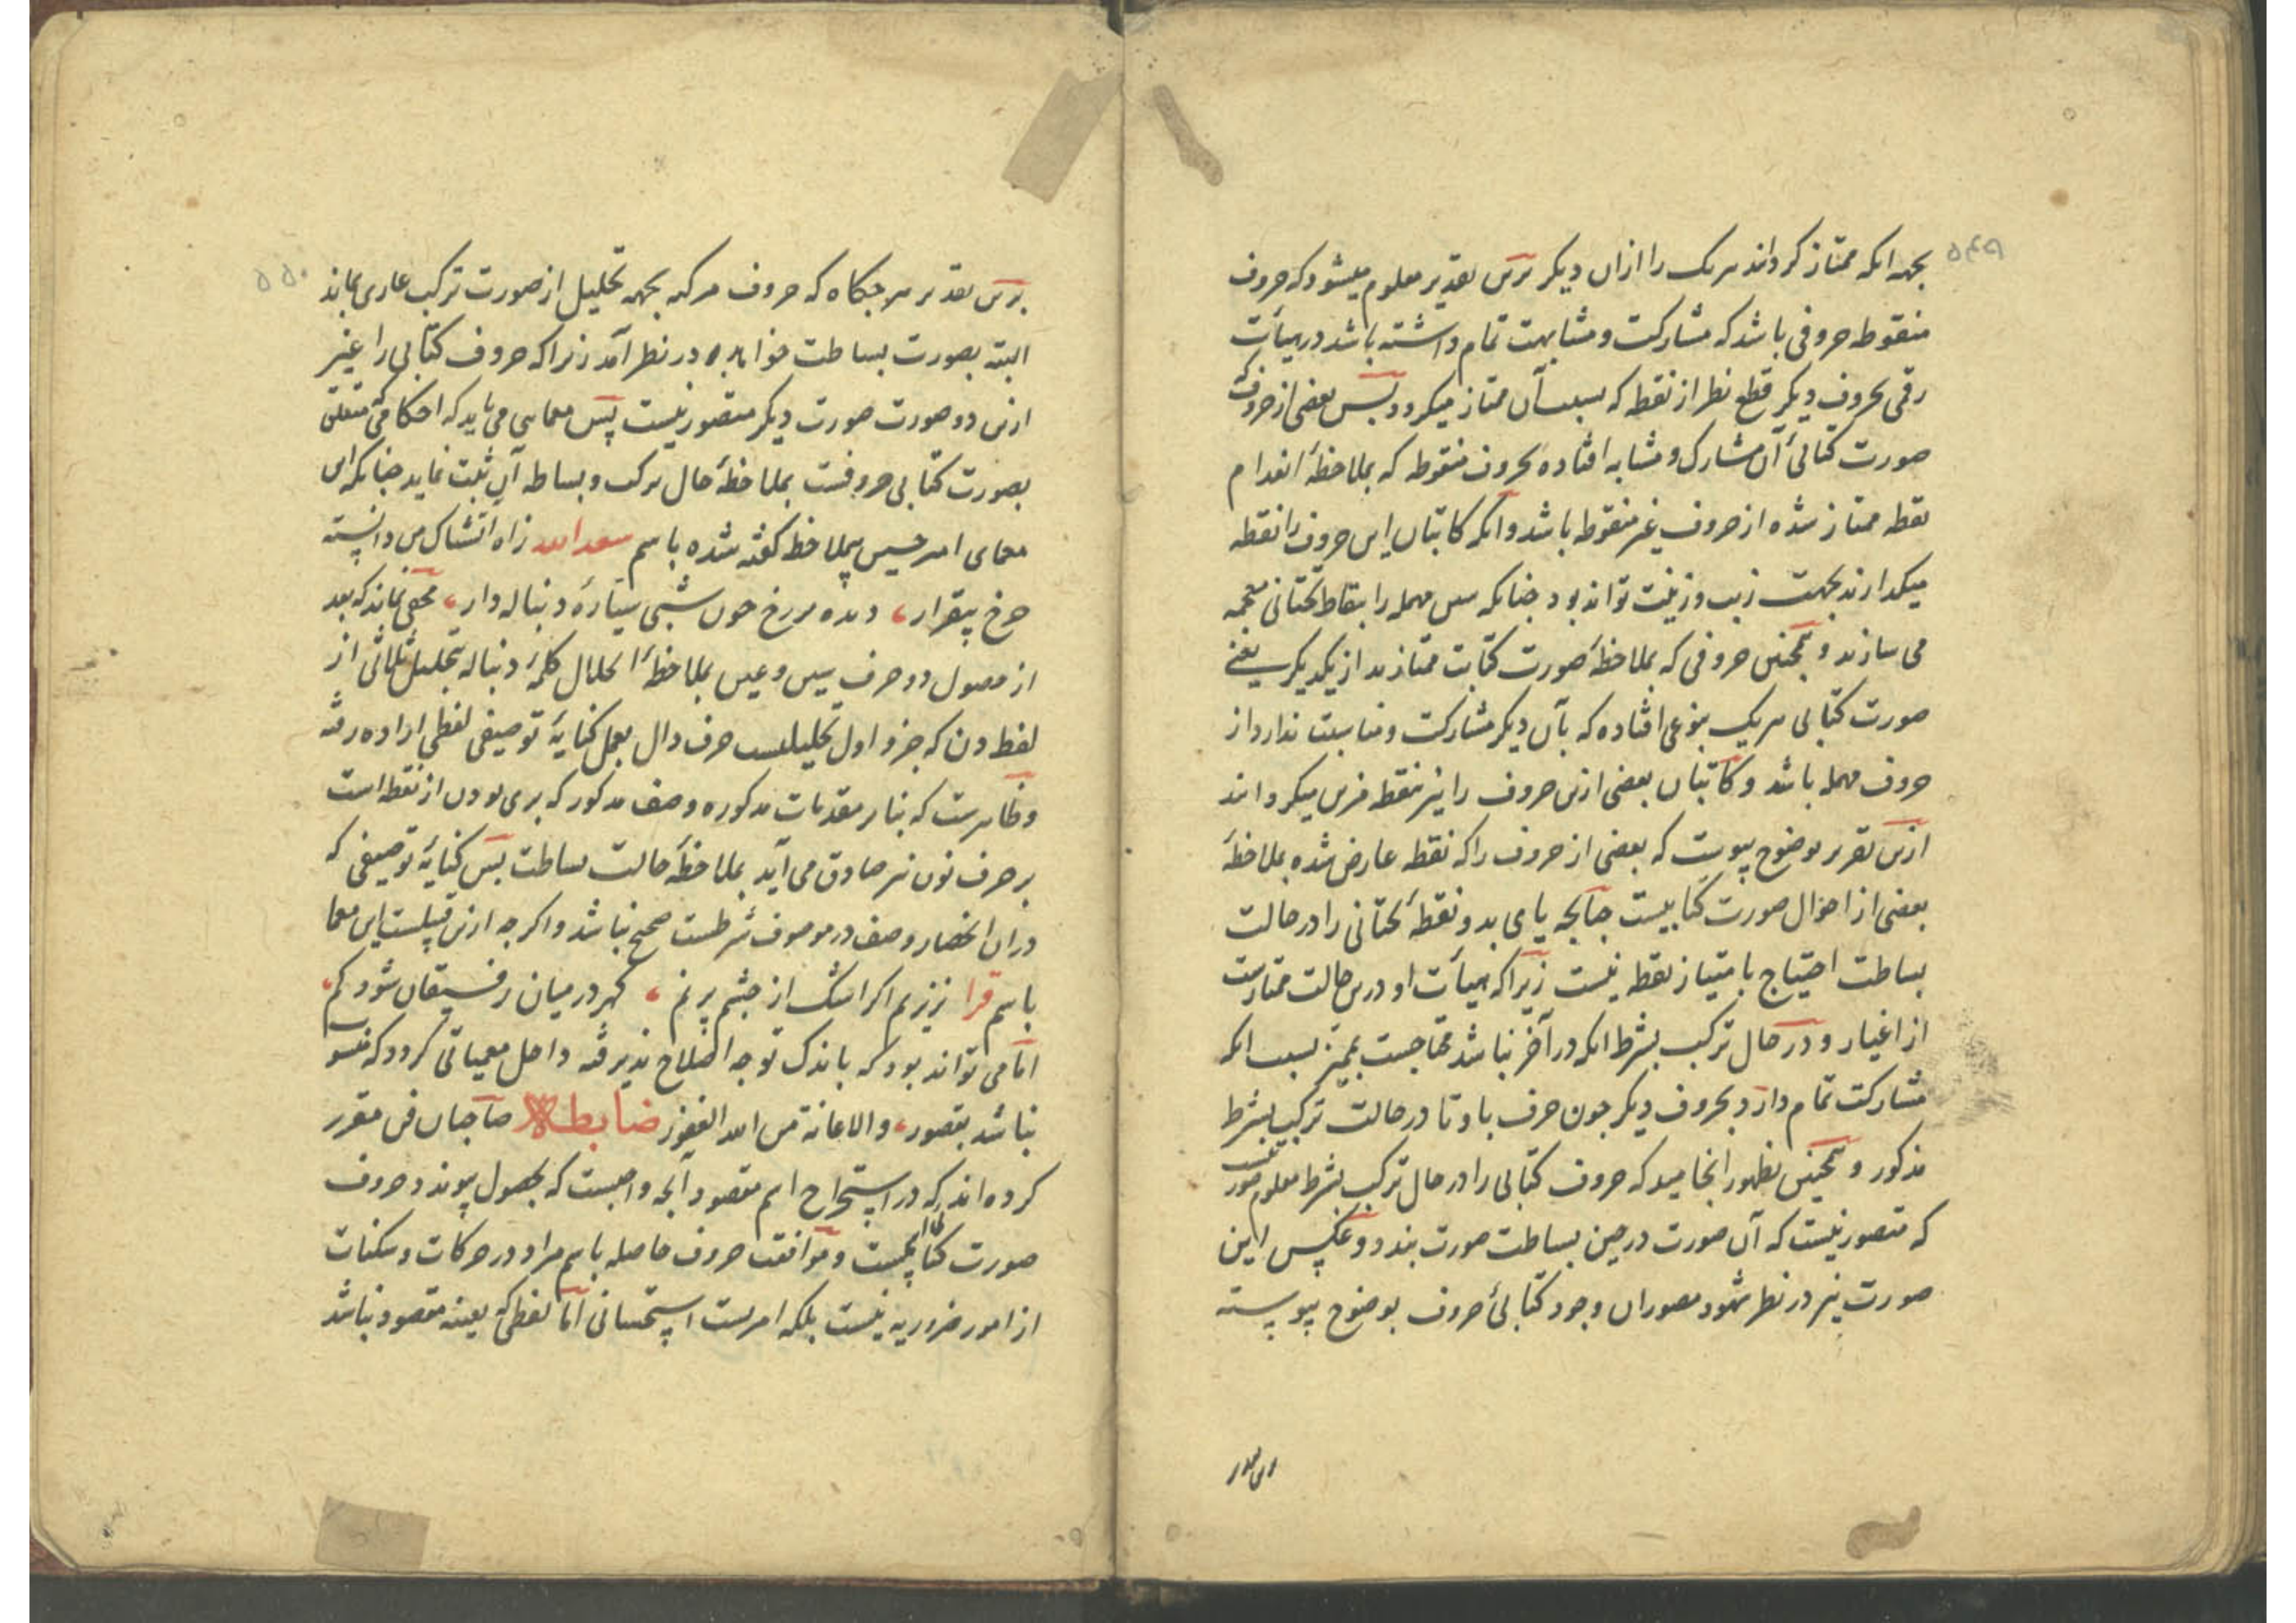 ۵۴۹
بجهه انکه ممتاز کردانند هریک را ازان دیکر برین تقدیر معلوم میشود که حروف
منقوطه حروفی باشد که مشارکت و مشابهت تمام داشته باشد در هیأت
رقمی بحروف دیکر قطع نظر از نقطه که بسبب آن ممتاز میکردد پس بعضی از حروف که
صورت کتابیٔ آن مشارک و مشابه افتاده بحروف منقوطه که بملاحظهٔ انعدام
نقطه ممتاز شده از حروف غیر منقوطه باشد و انکه کاتبان این حروف را نقطه
میکذارند بجهت زیب و زینت تواند بود چنانکه سین مهمله را بنقاط تحتانی معجمه
می سازند و همچنین حروفی که بملاحظهٔ صورت کتابت ممتازند از یکدیکر یعنی
صورت کتابی هریک بنوعی افتاده که بآن دیکر مشارکت و مناسبت ندارد از
حروف مهمله باشد و کاتبان بعضی ازین حروف را نیز بنقطه مزین میکردانند
ازین تقریر بوضوح پیوست که بعضی از حروف را که نقطه عارض شده بملاحظهٔ
بعضی از احوال صورت کتابیست چنانچه یای بدو نقطهٔ تحتانی را در حالت
بساطت احتیاج بامتیاز نقطه نیست زیرا که هیأت او درین حالت ممتازست
از اغیار و در حال ترکیب بشرط انکه در آخر نباشد محتاجست بممیز بسبب انکه
مشارکت تمام دارد بحروف دیکر چون حرف با و تا در حالت ترکیب بشرط
مذکور و همچنین بظهور انجامید که حروف کتابی را در حال ترکیب بشرط معلوم صورتیست
که متصور نیست که آن صورت در حین بساطت صورت بندد و عکس این
صورت نیز در نظر شهود مصوران وجود کتابیٔ حروف بوضوح پیوسته
۵۵۰
برین تقدیر هرجکاه که حروف مرکبه بجهه تحلیل از صورت ترکیب عاری بماند
البته بصورت بساطت خواهد در نظر آمد زیرا که حروف کتابی را غیر
ازین دو صورت صورت دیکر متصور نیست پس معمایی می باید که احکامی که متعلق
بصورت کتابی حروفست بملاحظهٔ حال ترکیب و بساطه آن ثبت نماید چنانکه این
معمای امیر حسین بملاحظه کفته شده باسم سعد الله زاه اتشناک من دانسته
چرخ بیقرار، دیده مه رخ چون شبی سیارهٔ دنباله دار، مخفی نماند که بعد
از حصول دو حرف سین و عین بملاحظهٔ انحلال کلمهٔ دنباله بتحلیل ثلاثی از
لفظ دن که جزو اول تحلیلیست حرف دال بعمل کنایهٔ توصیفی لفظی اراده رفته
و ظاهرست که بنابر مقدمات مذکوره وصف مذکور که بری بودن از نقطه است
بر حرف نون نیز صادق می آید بملاحظهٔ حالت بساطت پس کنایهٔ توصیفی که
دران انحصار وصف در موصوف شرطست صحیح نباشد و اکرچه ازین قبیلست این معما
باسم قرا زیزیم اکر اشک از چشم پر نم، کهر در میان رفیقان شود کم،
اما می تواند بود که باندک توجه اصلاح پذیرفته داخل معمیاتی کردد که منسوب
نباشد بقصور، والاعانة من الله الغفور ضابطه صاحبان فن مقرر
کرده اند که در استخراج اسم مقصود آنچه واجبست که بحصول پیوندد حروف
صورت کتابیست و موافقت حروف حاصله باسم مراد در حرکات و سکنات
از امور ضروریه نیست بلکه امریست استحسانی اما لفظی که بعینه مقصود نباشد